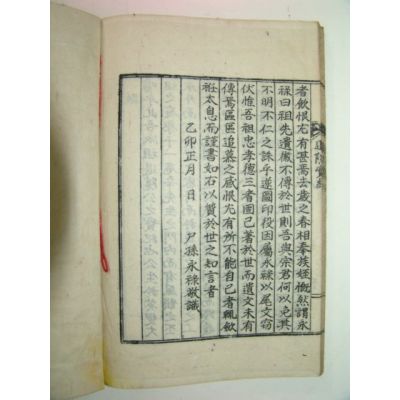 者飮恨尤有甚焉去歲之春相奉族姪慨然謂永
祿曰祖先遺徽不傳於世則吾與宗君何以免其
不明不仁之誅乎遂圖印役因屬永祿以尾文竊
伏惟吾祖忠孝德三者固已著於世而遺文未有
傳焉區區追慕之感恨尤有所不能自已者輒飮
衽太息而謹書如右以贊於世之知言者
乙卯正月 日 尸孫永祿敬識